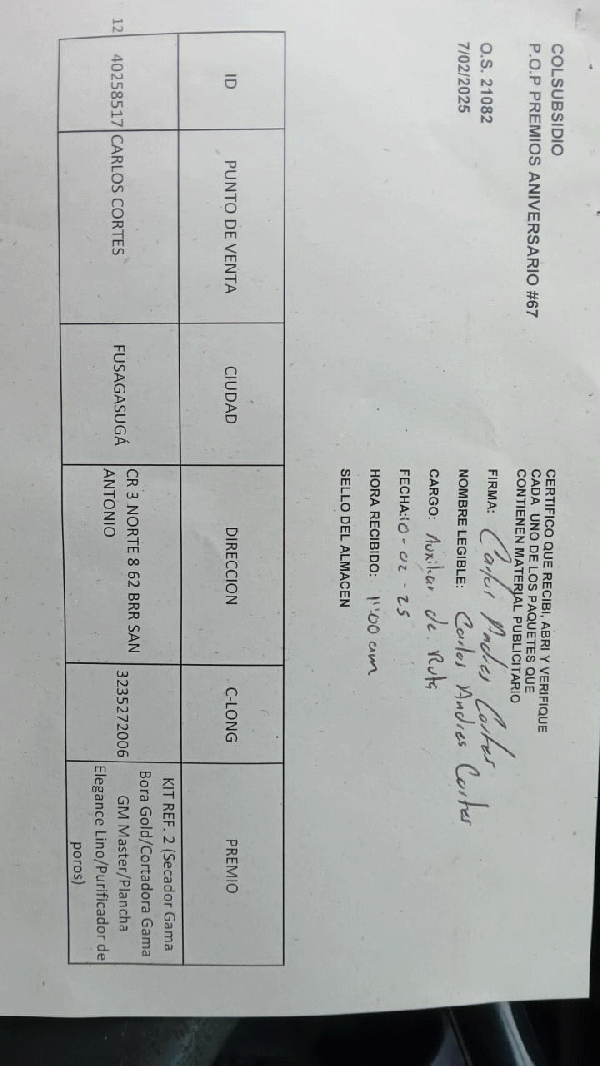 COLSUBSIDIO
P.O.P PREMIOS ANIVERSARIO #67
O.S. 21082
7/02/2025
CERTIFICO QUE RECIBI, ABRI Y VERIFIQUE
CADA UNO DE LOS PAQUETES QUE
CONTIENEN MATERIAL PUBLICITARIO
FIRMA: Carlos Andres Cortes
NOMBRE LEGIBLE: Carlos Andres Cortes
CARGO: Auxiliar de Ruta
FECHA:10-02-25
HORA RECIBIDO: 1:00 am
SELLO DEL ALMACEN
ID PUNTO DE VENTA CIUDAD DIRECCION C-LONG PREMIO
12 40258517 CARLOS CORTES FUSAGASUGÁ CR 3 NORTE 8 62 BRR SAN
ANTONIO 3235272006 KIT REF. 2 (Secador Gama
Bora Gold/Cortadora Gama
GM Master/Plancha
Elegance Lino/Purificador de
poros)